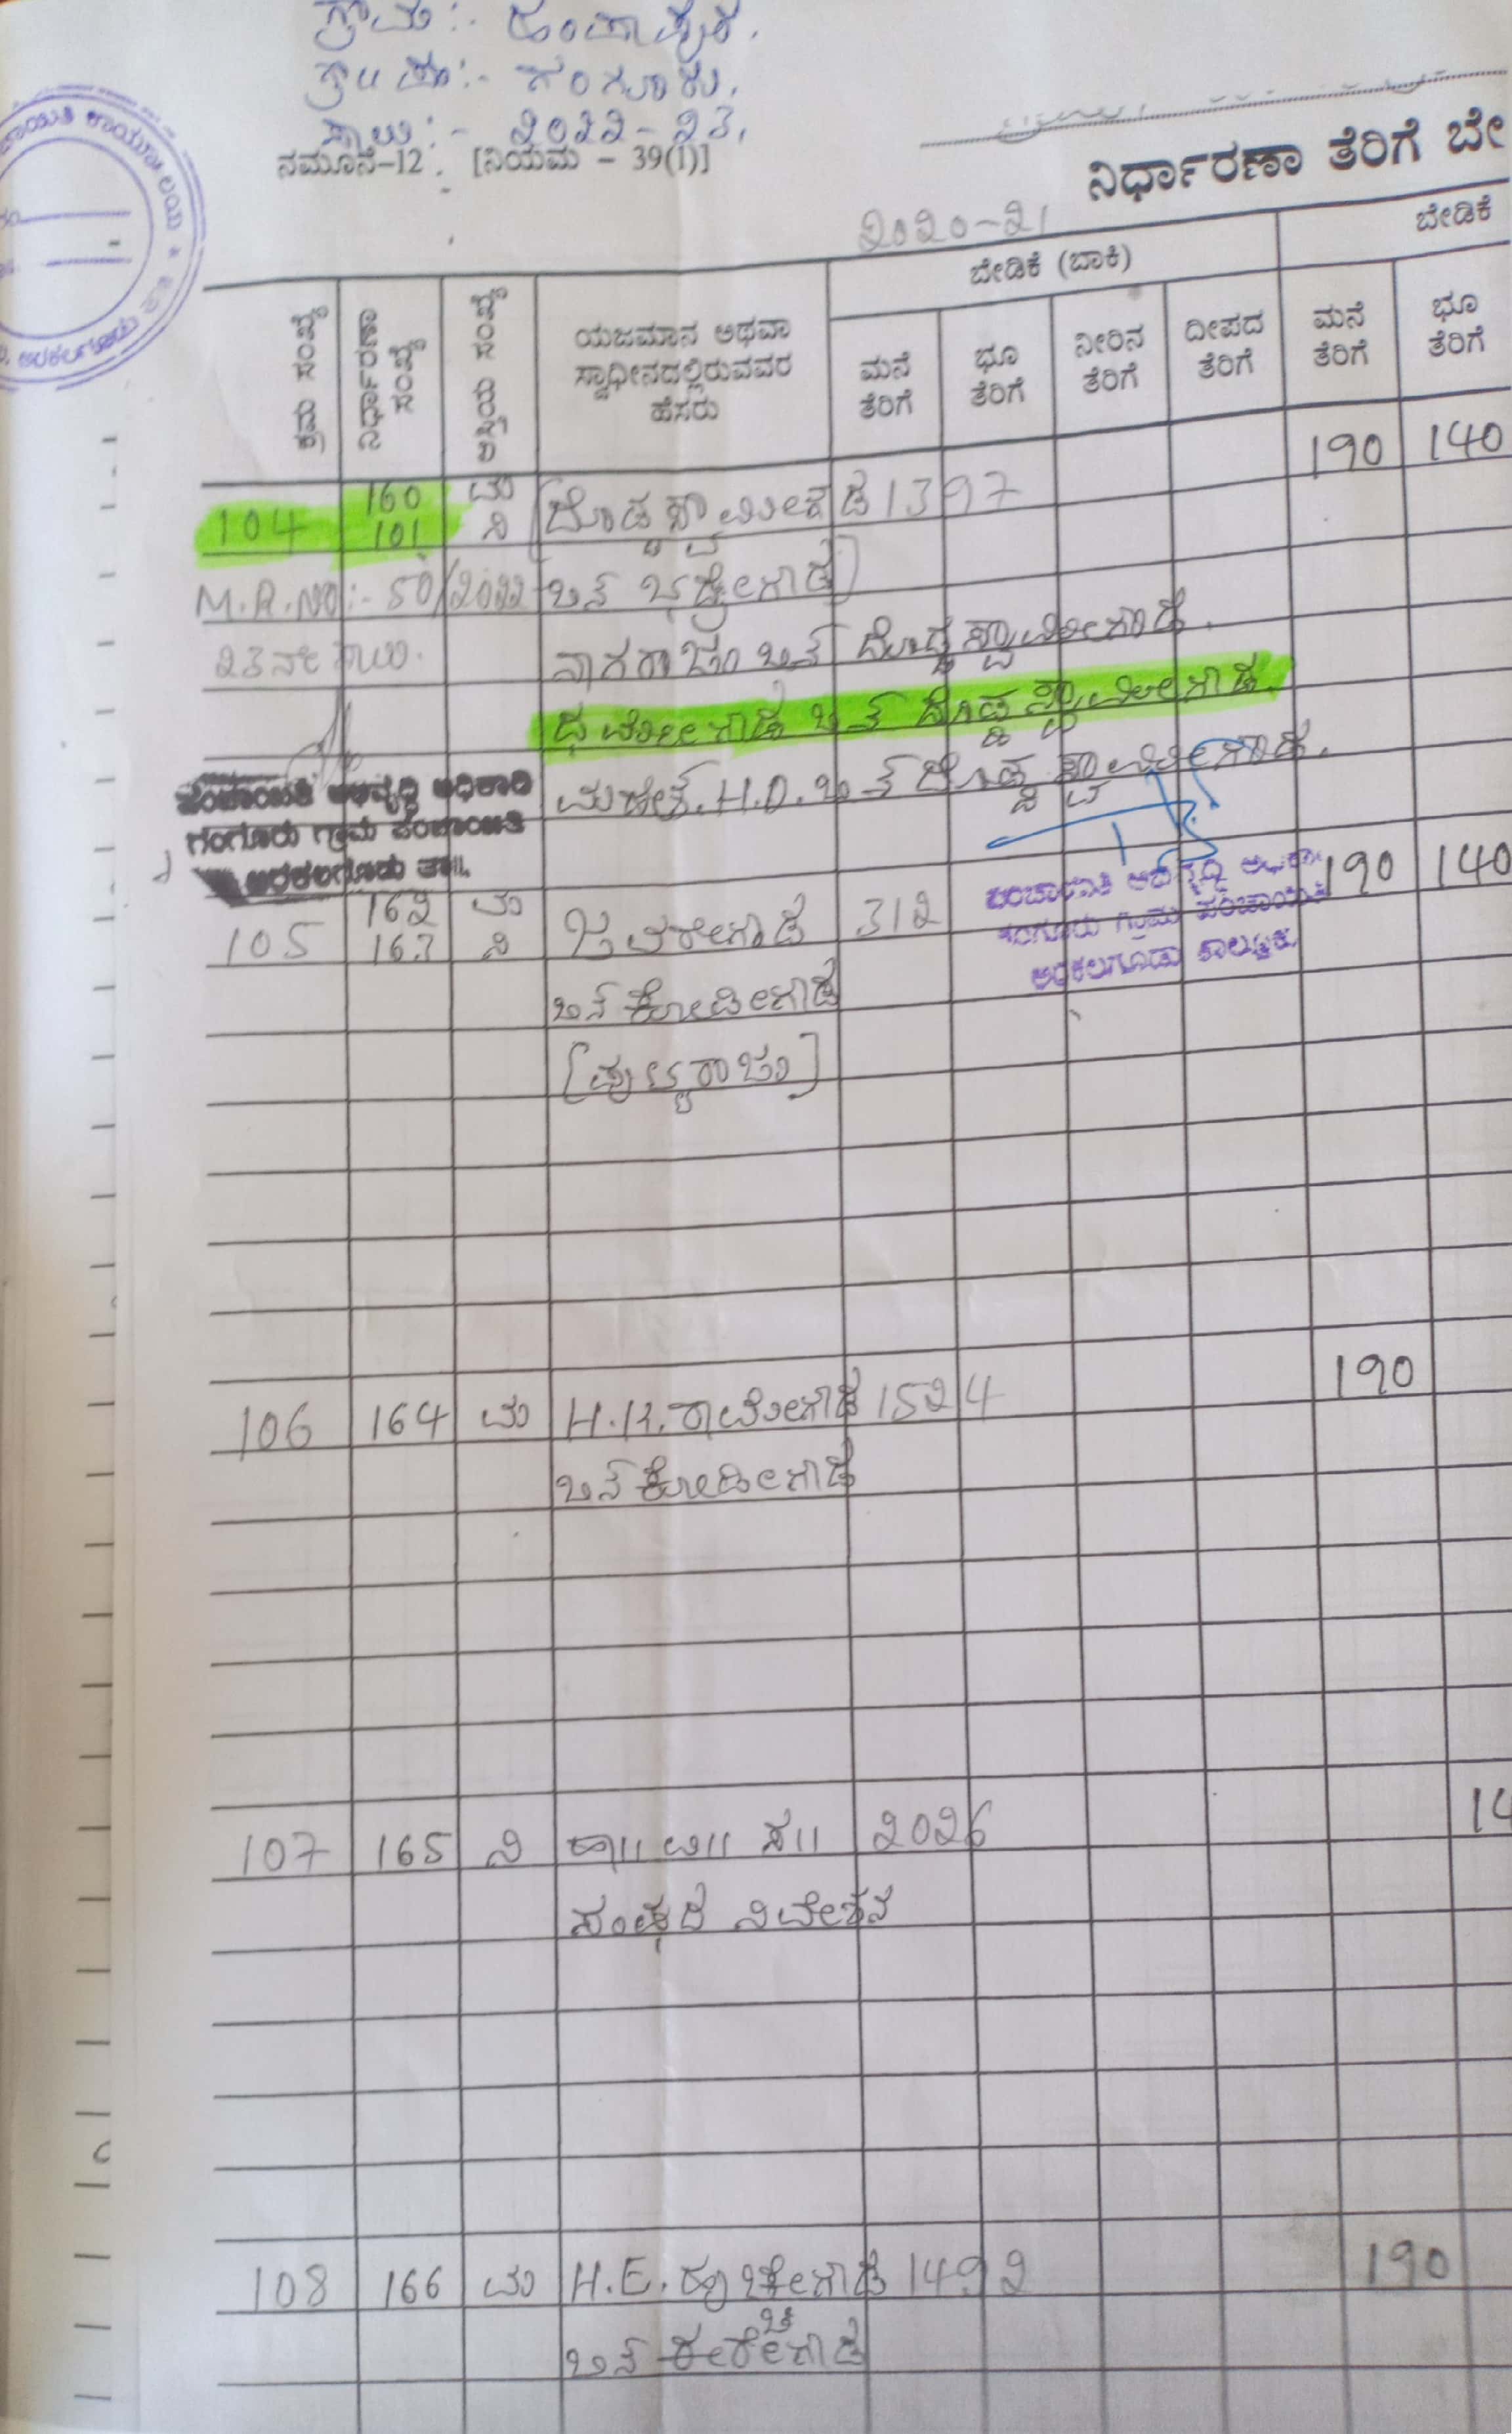 ಗ್ರಾಮ :-
ಗ್ರಾ ಪಂ :- ಗಂಗೂರು.
ಸಾಲು :- ೨೦೨೨-೨೩.
ನಮೂನೆ-12. [ನಿಯಮ - 39(1)]
ನಿರ್ಧಾರಣಾ ತೆರಿಗೆ ಬೇ
೨೦೨೦-೨1
ಬೇಡಿಕೆ (ಬಾಕಿ) ಬೇಡಿಕೆ
ಕ್ರಮ ಸಂಖ್ಯೆ
ನಿರ್ಧಾರಣಾ ಸಂಖ್ಯೆ
ಆಸ್ತಿಯ ಸಂಖ್ಯೆ
ಯಜಮಾನ ಅಥವಾ
ಸ್ವಾಧೀನದಲ್ಲಿರುವವರ
ಹೆಸರು
ಮನೆ ತೆರಿಗೆ
ಭೂ ತೆರಿಗೆ
ನೀರಿನ ತೆರಿಗೆ
ದೀಪದ ತೆರಿಗೆ
ಮನೆ ತೆರಿಗೆ
ಭೂ ತೆರಿಗೆ
160 ಮ 190 140
104 101 ನಿ [ದೊಡ್ಡಸ್ವಾಮೀಗೌಡ 1397
M.R.NO:- 50/2022 ಬಿನ್
23ನೇ ಸಾಲು. ನಾಗರಾಜು ಬಿನ್ ದೊಡ್ಡಸ್ವಾಮೀಗೌಡ.
ಧರ್ಮೇಗೌಡ ಬಿನ್ ದೊಡ್ಡಸ್ವಾಮೀಗೌಡ.
ಮಹೇಶ್.H.D. ಬಿನ್ ದೊಡ್ಡಸ್ವಾಮೀಗೌಡ.
ಪಂಚಾಯಿತಿ ಅಭಿವೃದ್ಧಿ ಅಧಿಕಾರಿ
ಗಂಗೂರು ಗ್ರಾಮ ಪಂಚಾಯಿತಿ
ಅರಕಲಗೂಡು ತಾ॥.
ಪಂಚಾಯಿತಿ ಅಭಿವೃದ್ಧಿ ಅಧಿಕಾರಿ
ಗಂಗೂರು ಗ್ರಾಮ ಪಂಚಾಯಿತಿ
ಅರಕಲಗೂಡು ತಾಲ್ಲೂಕು.
162 ಮ 190 140
105 163 ನಿ ಜವರೇಗೌಡ 312
ಬಿನ್ ಕೋಡೀಗೌಡ
[ಪುಟ್ಟರಾಜು]
190
106 164 ಮ H.K. ರಾಮೇಗೌಡ 1524
ಬಿನ್ ಕೋಡೀಗೌಡ
14
107 165 ನಿ ಹಾ॥ ಉ॥ ಸ॥ 2026
ಸಂಘದ ನಿವೇಶನ
190
108 166 ಮ H.E. 1492
ಬಿನ್